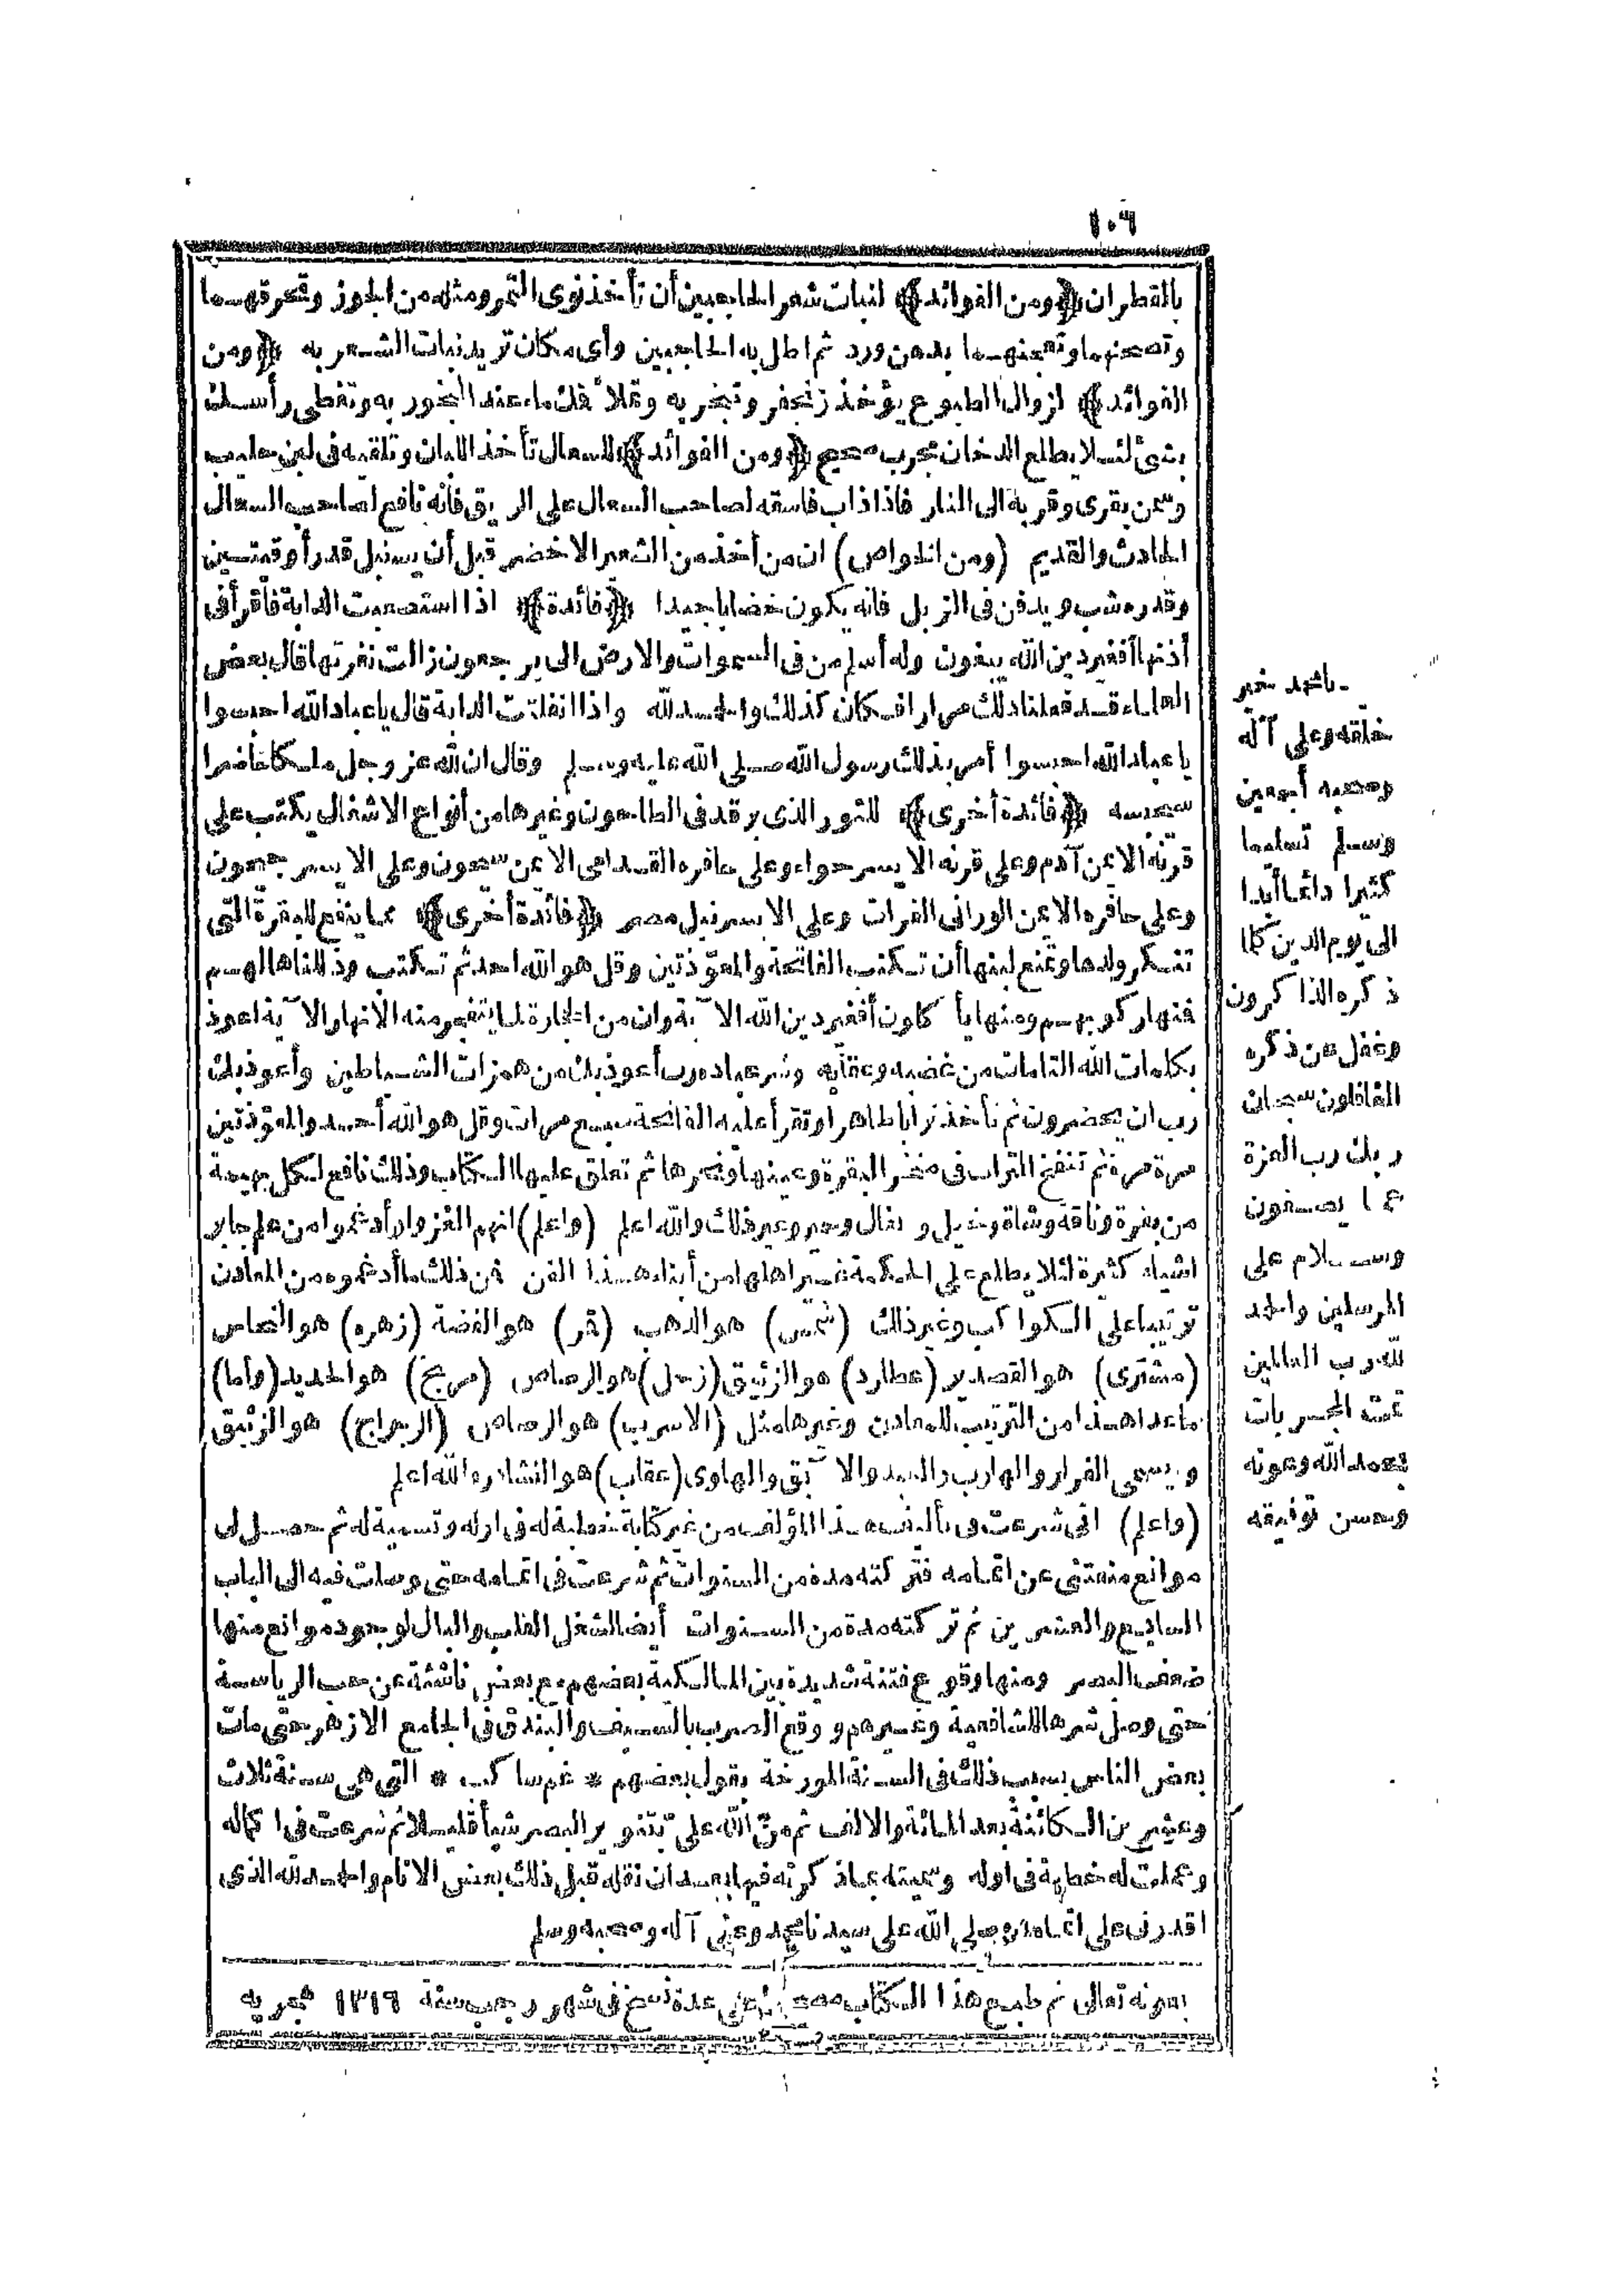 ١٠٦
بالقطران ﴿ومن الفوائد﴾ لنبات شعر الحاجبين أن تأخذ نوى التمر ومثله من الجوز وتحرقهما
وتصحنهما وتعجنهما بدهن ورد ثم اطل به الحاجبين وأى مكان تريد نبات الشعر به ﴿ومن
الفوائد﴾ لزوال الطبوع يؤخذ زنجفر وتبخر به وتملأ فمك ماء عند البخور به وتغطى رأسك
بشئ لئلا يطلع الدخان مجرب صحيح ﴿ومن الفوائد﴾ للسعال تأخذ اللبان وتلقيه فى لبن حليب
وسمن بقرى وقربه الى النار فاذا ذاب فاسقه لصاحب السعال على الريق فانه نافع لصاحب السعال
الحادث والقديم (ومن الخواص) ان من أخذ من الشعير الاخضر قبل أن يسنبل قدر أوقيتين
وقدره شب ويدفن فى الزبل فانه يكون خضابا جيدا ﴿فائدة﴾ اذا استصعبت الدابة فاقرأ فى
أذنها أفغير دين الله يبغون وله أسلم من فى السموات والارض الى يرجعون زالت نفرتها قال بعض
العلماء قد فعلنا ذلك مرارا فكان كذلك والحمد لله واذا انفلتت الدابة قال يا عباد الله احبسوا
يا عباد الله احبسوا أمر بذلك رسول الله صلى الله عليه وسلم وقال ان لله عز وجل ملكا حاضرا
سيحبسه ﴿فائدة أخرى﴾ للثور الذى يرقد فى الطاحون وغيرها من أنواع الاشغال يكتب على
قرنه الايمن آدم وعلى قرنه الايسر حواء وعلى حافره القدامى الايمن سيحون وعلى الايسر جيحون
وعلى حافره الايمن الورانى الفرات وعلى الايسر نيل مصر ﴿فائدة أخرى﴾ مما ينفع للبقرة التى
تنكر ولدها وتمنع لبنها أن تكتب الفاتحة والمعوّذتين وقل هو الله احد ثم تكتب وذللناها لهم
فمنها ركوبهم ومنها يأكلون أفغير دين الله الآية وان من الحجارة لما يتفجر منه الانهار الآية اعوذ
بكلمات الله التامات من غضبه وعقابه وشر عباده رب أعوذ بك من همزات الشياطين وأعوذ بك
رب ان يحضرون ثم تأخذ ترابا طاهرا وتقرأ عليه الفاتحة سبع مرات وقل هو الله أحد والمعوّذتين
مرة مرة ثم تنفخ التراب فى منخر البقرة وعينها ونحرها ثم تعلق عليها الكتاب وذلك نافع لكل بهيمة
من بقرة وناقة وشاة وخيل وبغال وحمير وغير ذلك والله اعلم (واعلم) انهم الغزوا وأدغموا من علم جابر
اشياء كثيرة لئلا يطلع على الحكمة غير اهلها من أبناء هذا الفن فمن ذلك ما أدغموه من المعادن
ترتيبا على الكواكب وغير ذلك (شمس) هو الذهب (قمر) هو الفضة (زهره) هو النحاس
(مشترى) هو القصدير (عطارد) هو الزئبق (زحل) هو الرصاص (مريخ) هو الحديد (وأما)
ما عدا هذا من الترتيب للمعادن وغيرها مثل (الاسرب) هو الرصاص (الرجراج) هو الزئبق
ويسمى الفرار والهارب والعبد والآبق والهاوى (عقاب) هو النشادر والله اعلم
(واعلم) انى شرعت فى تأليف هذا المؤلف من غير كتابة خطبة له فى اوله وتسمية له ثم حصل لى
موانع منعتنى عن اتمامه فتركته مدة من السنوات ثم شرعت فى اتمامه حتى وصلت فيه الى الباب
السابع والعشرين ثم تركته مدة من السنوات أيضا لشغل القلب والبال لوجود موانع منها
ضعف البصر ومنها وقوع فتنة شديدة بين المالكية بعضهم مع بعض ناشئة عن حب الرياسة
حتى وصل شرها للشافعية وغيرهم ووقع الضرب بالسيف والبندق فى الجامع الازهر حتى مات
بعض الناس بسبب ذلك فى السنة المورخة بقول بعضهم * غم ساكب * التى هى سنة ثلاث
وعشرين الكائنة بعد المائة والالف ثم منّ الله على بتنوير البصر شيأ قليلا ثم شرعت فى اكماله
وعملت له خطبة فى اوله وسميته بما ذكرته فيها بعد ان نقله قبل ذلك بعض الانام والحمد لله الذى
اقدرنى على اتمامه وصلى الله على سيدنا محمد وعلى آله وصحبه وسلم
بعونه تعالى تم طبع هذا الكتاب على عدة نسخ فى شهر رجب سنة ١٣١٩ هجريه
محمد خير
خلقه وعلى آله
وصحبه أجمعين
وسلم تسليما
كثيرا دائما أبدا
الى يوم الدين كلما
ذكره الذاكرون
وغفل عن ذكره
الغافلون سبحان
ربك رب العزة
عما يصفون
وسلام على
المرسلين والحمد
لله رب العالمين
تمت المجربات
بحمد الله وعونه
وحسن توفيقه